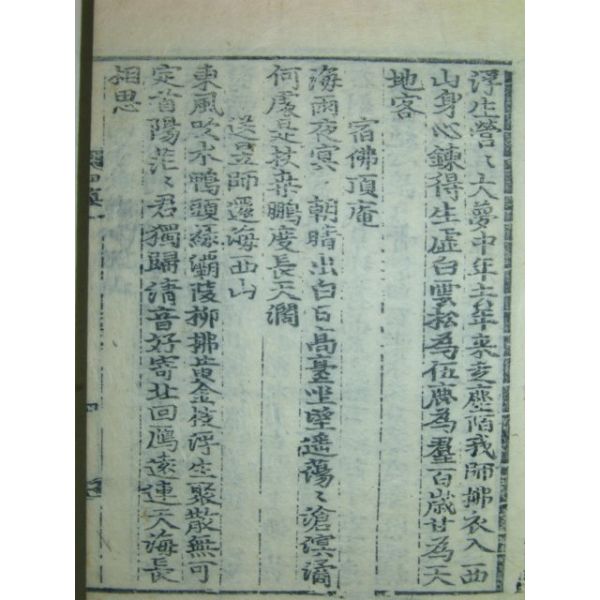 浮生營〻大夢中年去年來多塵陌我師拂衣入西
山身心鍊得生虛白雲松為伍鹿為羣百歲甘為天
地客
宿佛頂庵
海雨夜冥〻朝晴出白日高臺坐望遙蕩〻滄溟濶
何處是扶桑鵬度長天濶
送昱師還海西山
東風吹水鴨頭綠灞陵柳拂黃金枝浮生聚散無可
定首陽茫〻君獨歸清音好寄北回鴈遠連天海長
相思